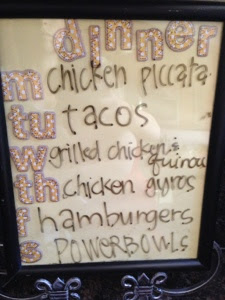 dinner
m chicken piccata
tu tacos
w grilled chicken & quinoa
th chicken gyros
f hamburgers
s POWERBOWLS